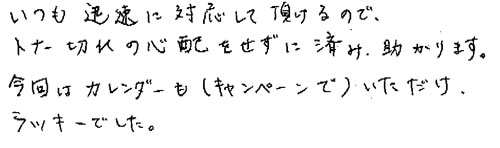 いつも迅速に対応して頂けるので、
トナー切れの心配をせずに済み、助かります。
今回はカレンダーも(キャンペーンで)いただけ、
ラッキーでした。